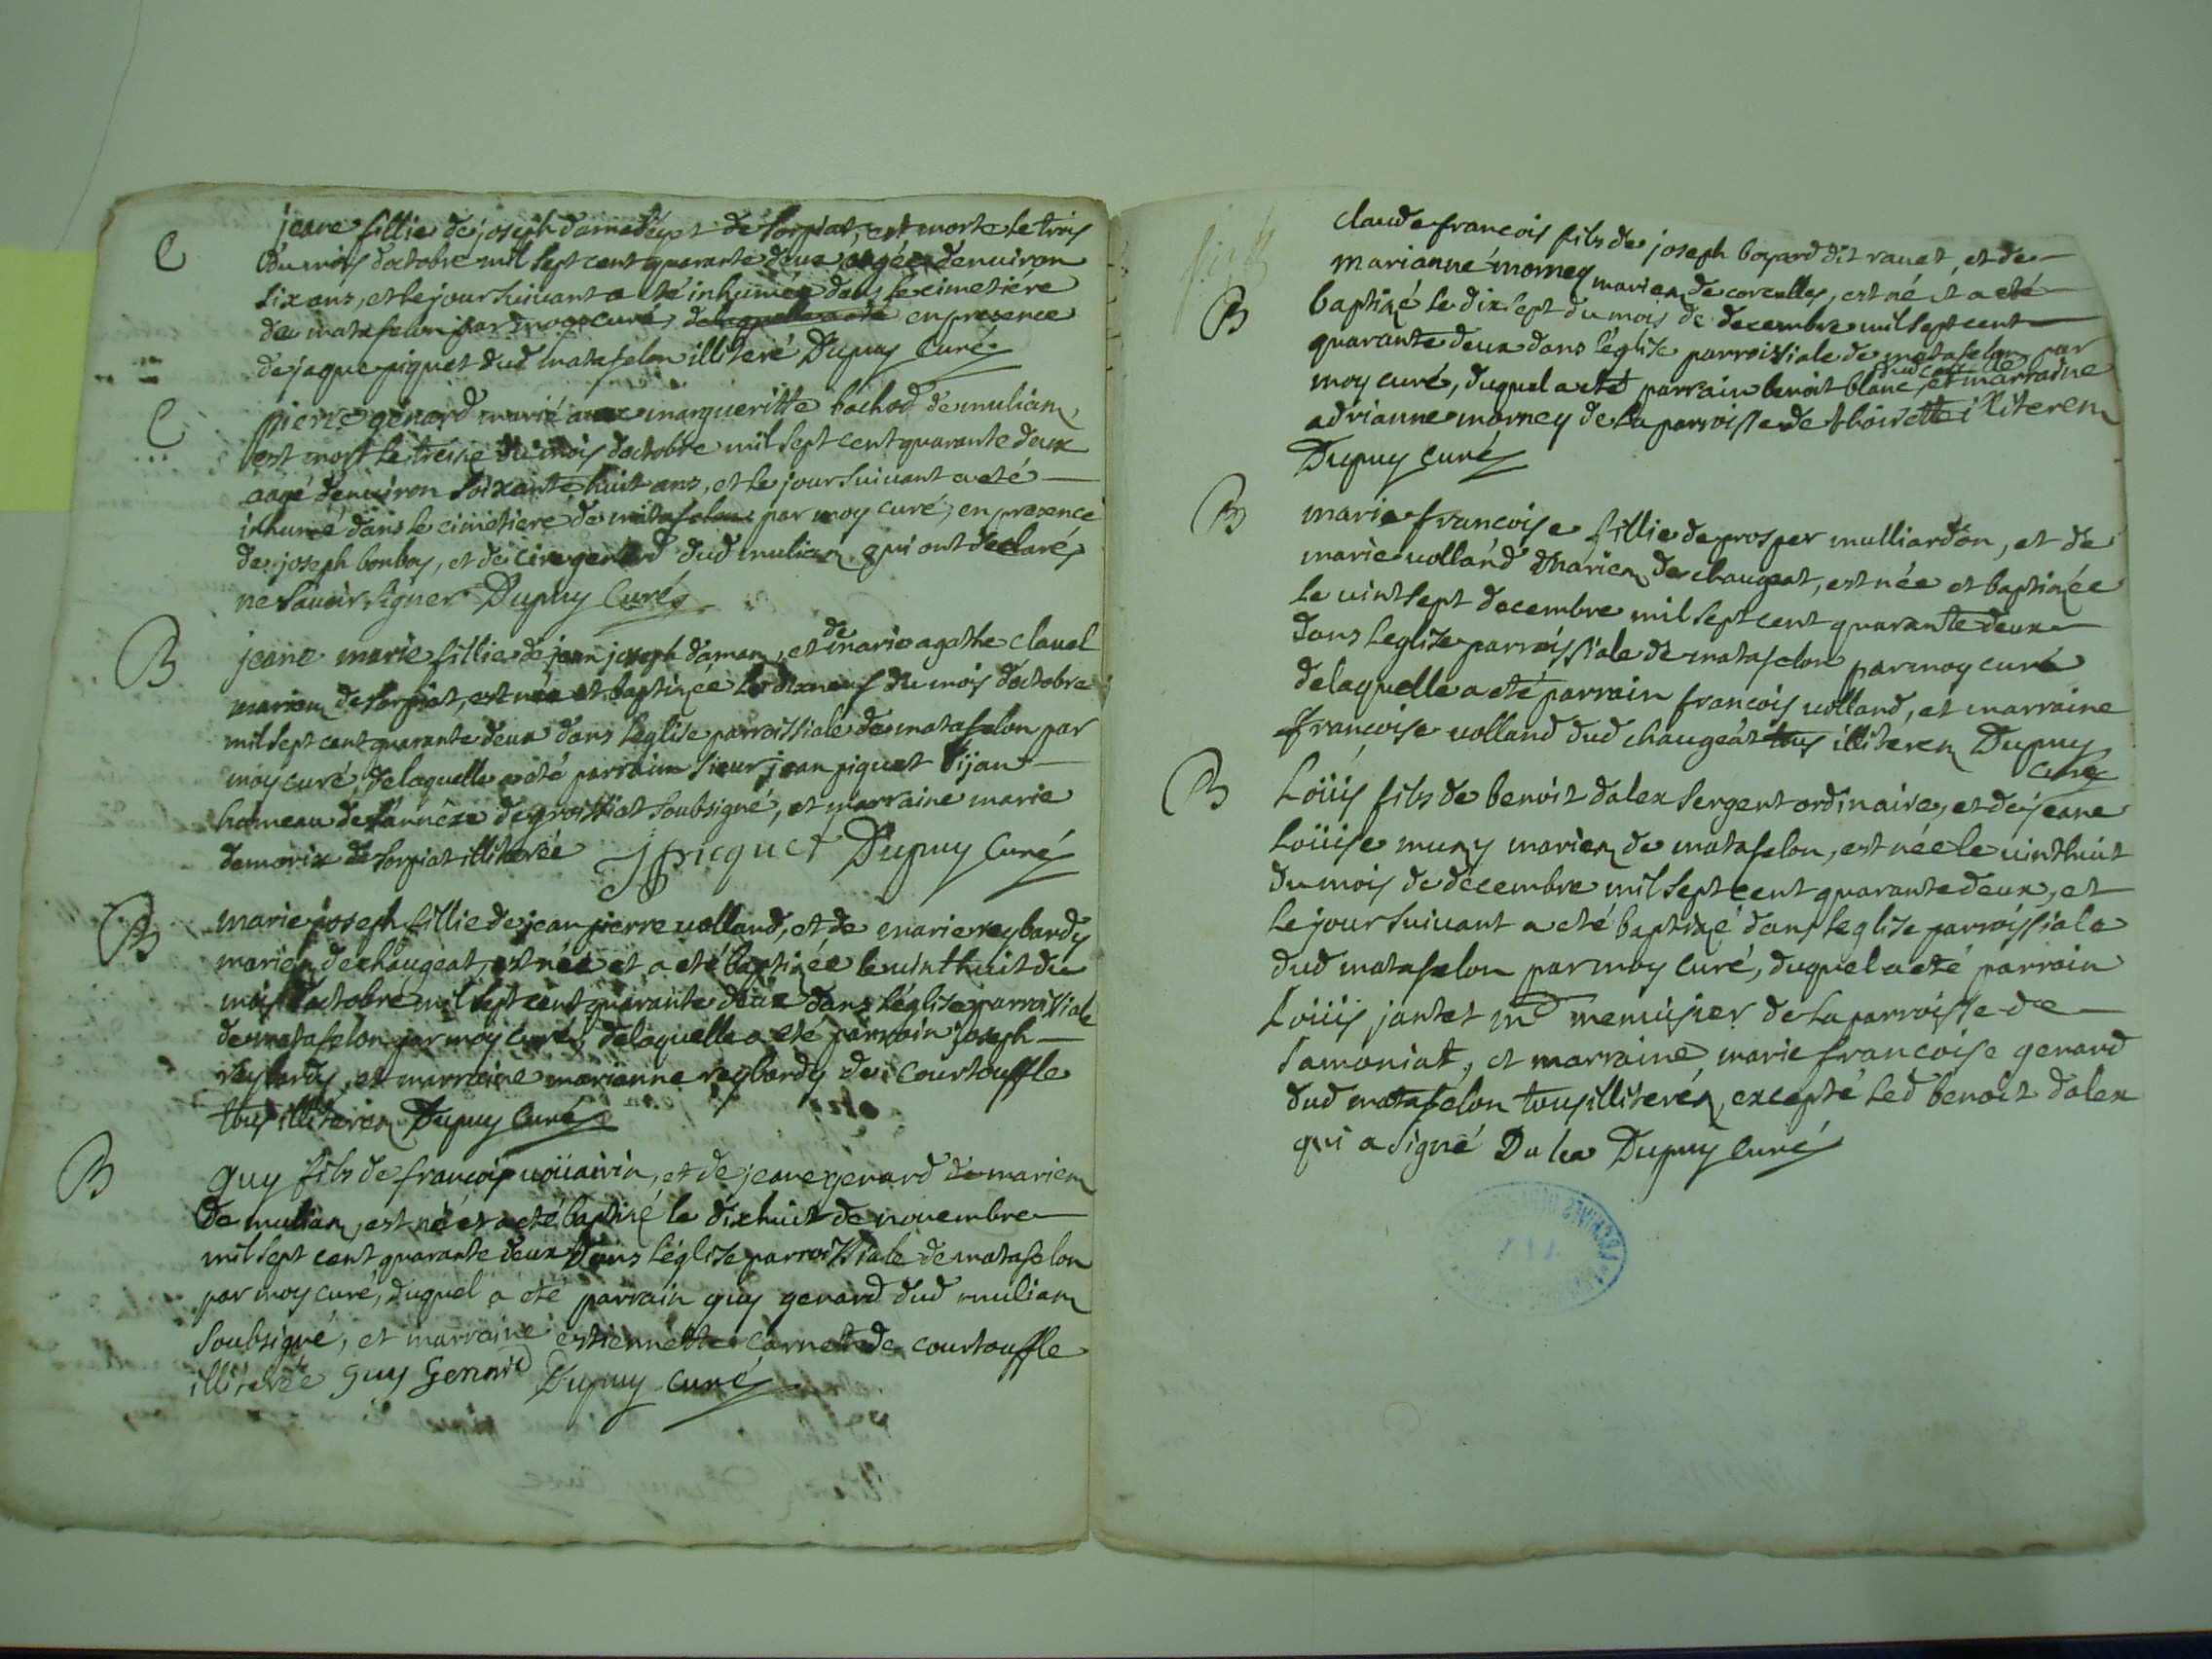 C
jeane fillie de joseph damedey et de sorpiat, est morte le trois
du mois doctobre mil sept cent quarante deux aagée denuiron
six ans, et le jour suiuant a eté inhumée dans le cimetiére
de matafelon par moy curé, en presence
de jaque piquet dud matafelon illiteré Dupuy Curé
C
pierre génard marié auec margueritte bachod de muliam
est mort le treise du mois doctobre mil sept cent quarante deux
aagé denuiron soixante huit ans, et le jour suiuant a eté
inhumé dans le cimetiere de matafelon par moy curé, en presence
de joseph bonboy, et de genard dud muliam qui ont declaré
ne sauoir signer Dupuy Curé
B
jeane marie fillie de jean joseph daman, et de marie agathe clauel
mariez de sorpiat, est née et baptizée le dixneuf du mois doctobre
mil sept cent quarante deux dans léglise parroissiale de matafelon par
moy curé, delaquelle a eté parrain sieur jean piquet bijan
hameau de de groissiat soubsigné, et marraine marie
demorix de sorpiat illiterée jpicquet Dupuy Curé
B
marie joseph fillie de jean pierre volland, et de marie reybardy
mariez de chaugeat, est née et a eté baptizée le uinthuit du
mois doctobre mil sept cent quarante deux dans léglise parroissiale
de matafelon par moy curé, delaquelle a eté parrain joseph
reybardy, et marraine marianne reybardy de Courtouffle
tous illiterez Dupuy Curé
B
guy fils de françois uoüairin, et de jeane genard de mariez
de muliam, est né et a eté baptizé le dixhuit de nouembre
mil sept cent quarante deux dans léglise parroissiale de matafelon
par moy curé, duquel a eté parrain guy genard dud muliam
soubsigné, et marraine estiennette Carnet de courtouffle
illiterée guy Genard Dupuy Curé
B
claude françois fils de joseph boyard dit rauet, et de
marianne morney mariez de corcelles, est né et a eté
baptizé le dixsept du mois de decembre mil sept cent
quarante deux dans léglise parroissiale de matafelon par
moy curé, duquel a eté parrain benoit blanc et marraine
adrianne morney de la parroisse de thoirette illiterez
Dupuy Curé
B
marie françoise fillie de prosper mulliardon, et de
marie uolland mariez de chaugeat, est née et baptizée
le uintsept decembre mil sept cent quarante deux
dans leglise parroissiale de matafelon par moy curé
delaquelle a eté parrain françois uolland, et marraine
françoise uolland dud chaugeat tous illiterez Dupuy
Curé
B
Loüis fils de benoit dalex sergent ordinaire, et de jeane
Loüise muny mariez de matafelon, est née le uinthuit
du mois de décembre mil sept cent quarante deux, et
le jour suiuant a eté baptizé dans leglise parroissiale
dud matafelon par moy curé, duquel a eté parrain
Loüis jantet md menuisier de la parroisse de
samoniat, et marraine marie françoise genard
dud matafelon tous illiterés, excepté led benoit dalex
qui a signé Dalex Dupuy Curé